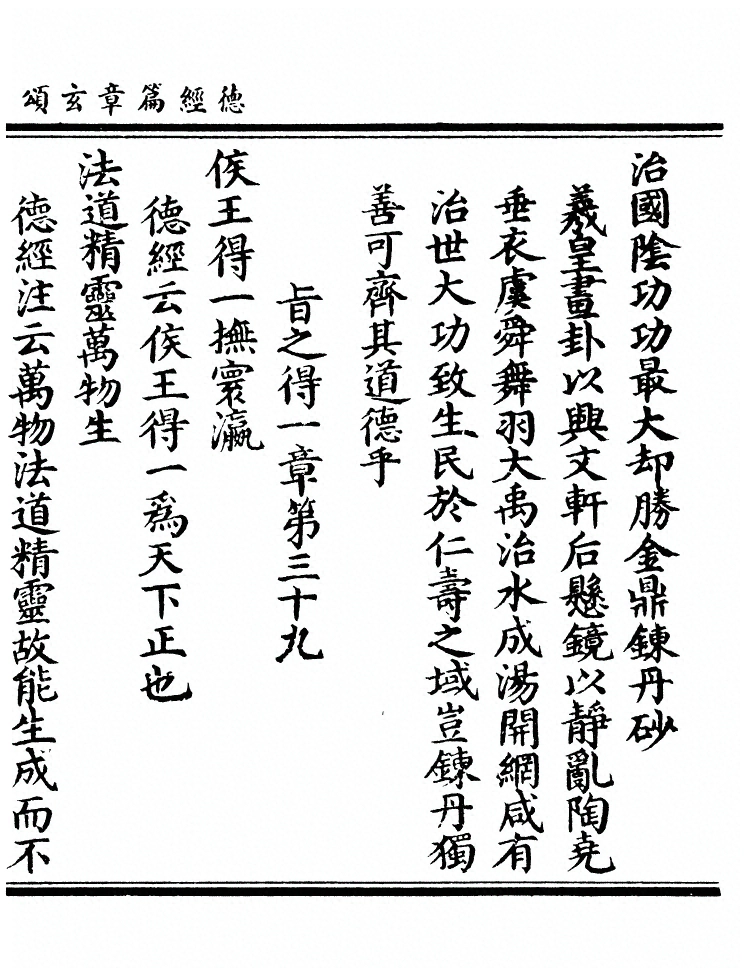 德經篇章玄頌
治國陰功功最大却勝金鼎鍊丹砂
羲皇畫卦以興文軒后懸鏡以靜亂陶堯
垂衣虞舜舞羽大禹治水成湯開網咸有
治世大功致生民於仁壽之域豈鍊丹獨
善可齊其道德乎
昔之得一章第三十九
侯王得一撫寰瀛
德經云侯王得一爲天下正也
法道精靈萬物生
德經注云萬物法道精靈故能生成而不